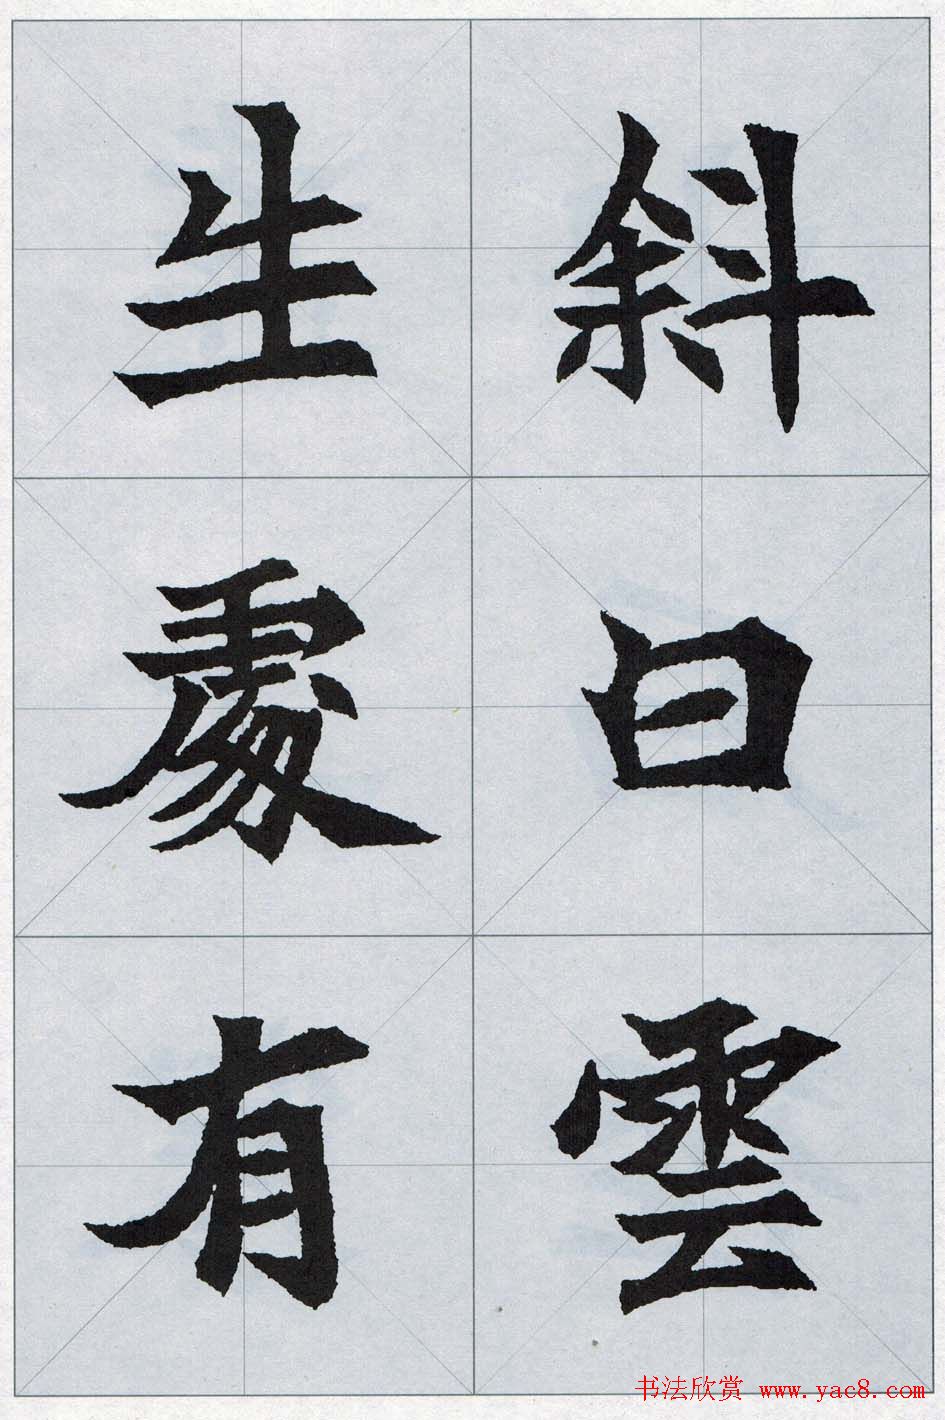 斜日雲
生處有
书法欣赏 www.yac8.com